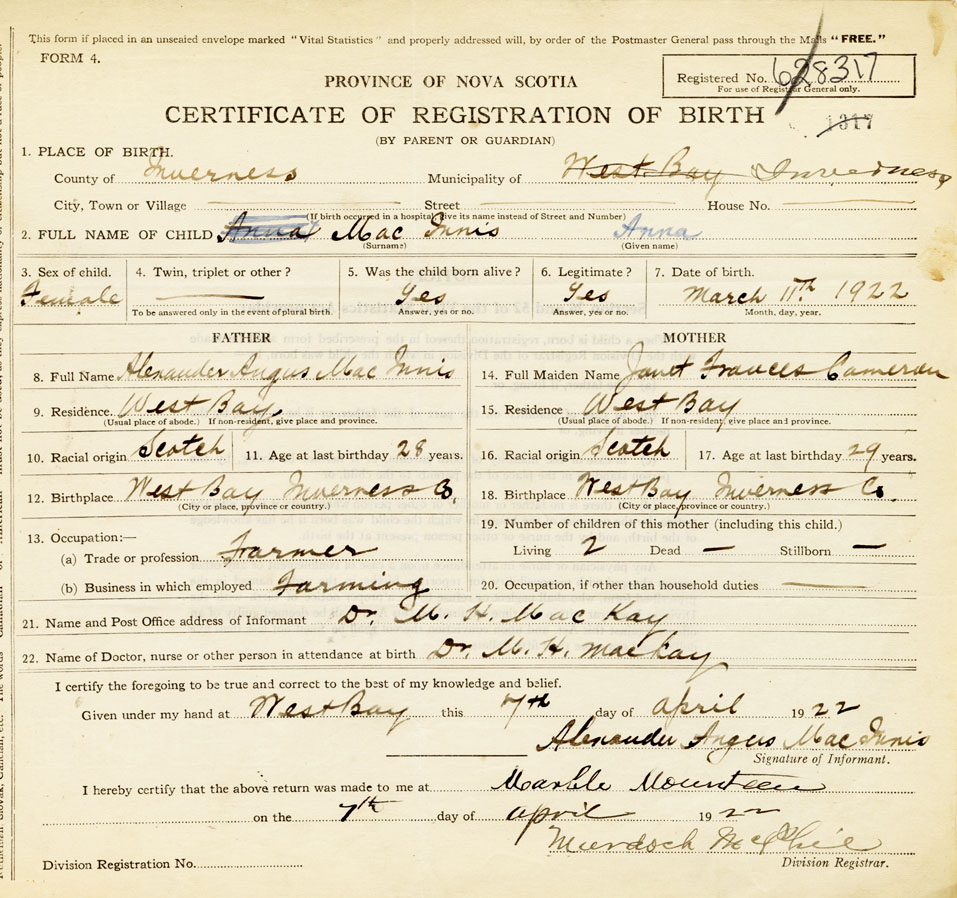 This form if placed in an unsealed envelope marked "Vital Statistics" and properly addressed will, by order of the Postmaster General pass through the Mails "FREE."
FORM 4.
PROVINCE OF NOVA SCOTIA
Registered No. 628317
For use of Registrar General only.
CERTIFICATE OF REGISTRATION OF BIRTH
1317
(BY PARENT OR GUARDIAN)
1. PLACE OF BIRTH.
County of Inverness Municipality of West Bay Inverness
City, Town or Village Street House No.
(If birth occurred in a hospital give its name instead of Street and Number)
2. FULL NAME OF CHILD Anna Mac Innis Anna
(Surname) (Given name)
3. Sex of child. 4. Twin, triplet or other? 5. Was the child born alive? 6. Legitimate? 7. Date of birth.
Female — Yes Yes March 11th 1922
To be answered only in the event of plural birth. Answer, yes or no. Answer, yes or no. Month, day, year.
FATHER MOTHER
8. Full Name Alexander Angus Mac Innis 14. Full Maiden Name Janet Frances Cameron
9. Residence. West Bay. 15. Residence West Bay
(Usual place of abode.) If non-resident, give place and province. (Usual place of abode.) If non-resident, give place and province.
10. Racial origin Scotch 11. Age at last birthday 28 years. 16. Racial origin Scotch 17. Age at last birthday 29 years.
12. Birthplace West Bay Inverness Co. 18. Birthplace West Bay Inverness Co.
(City or place, province or country.) (City or place, province or country.)
13. Occupation:— 19. Number of children of this mother (including this child.)
(a) Trade or profession Farmer Living 2 Dead — Stillborn —
(b) Business in which employed Farming 20. Occupation, if other than household duties —
21. Name and Post Office address of Informant Dr. M. H. MacKay
22. Name of Doctor, nurse or other person in attendance at birth Dr. M. H. Mackay
I certify the foregoing to be true and correct to the best of my knowledge and belief.
Given under my hand at West Bay this 7th day of April 1922
Alexander Angus Mac Innis
Signature of Informant.
I hereby certify that the above return was made to me at Marble Mountain
on the 7th day of April 1922
Murdoch McPhie
Division Registration No. Division Registrar.